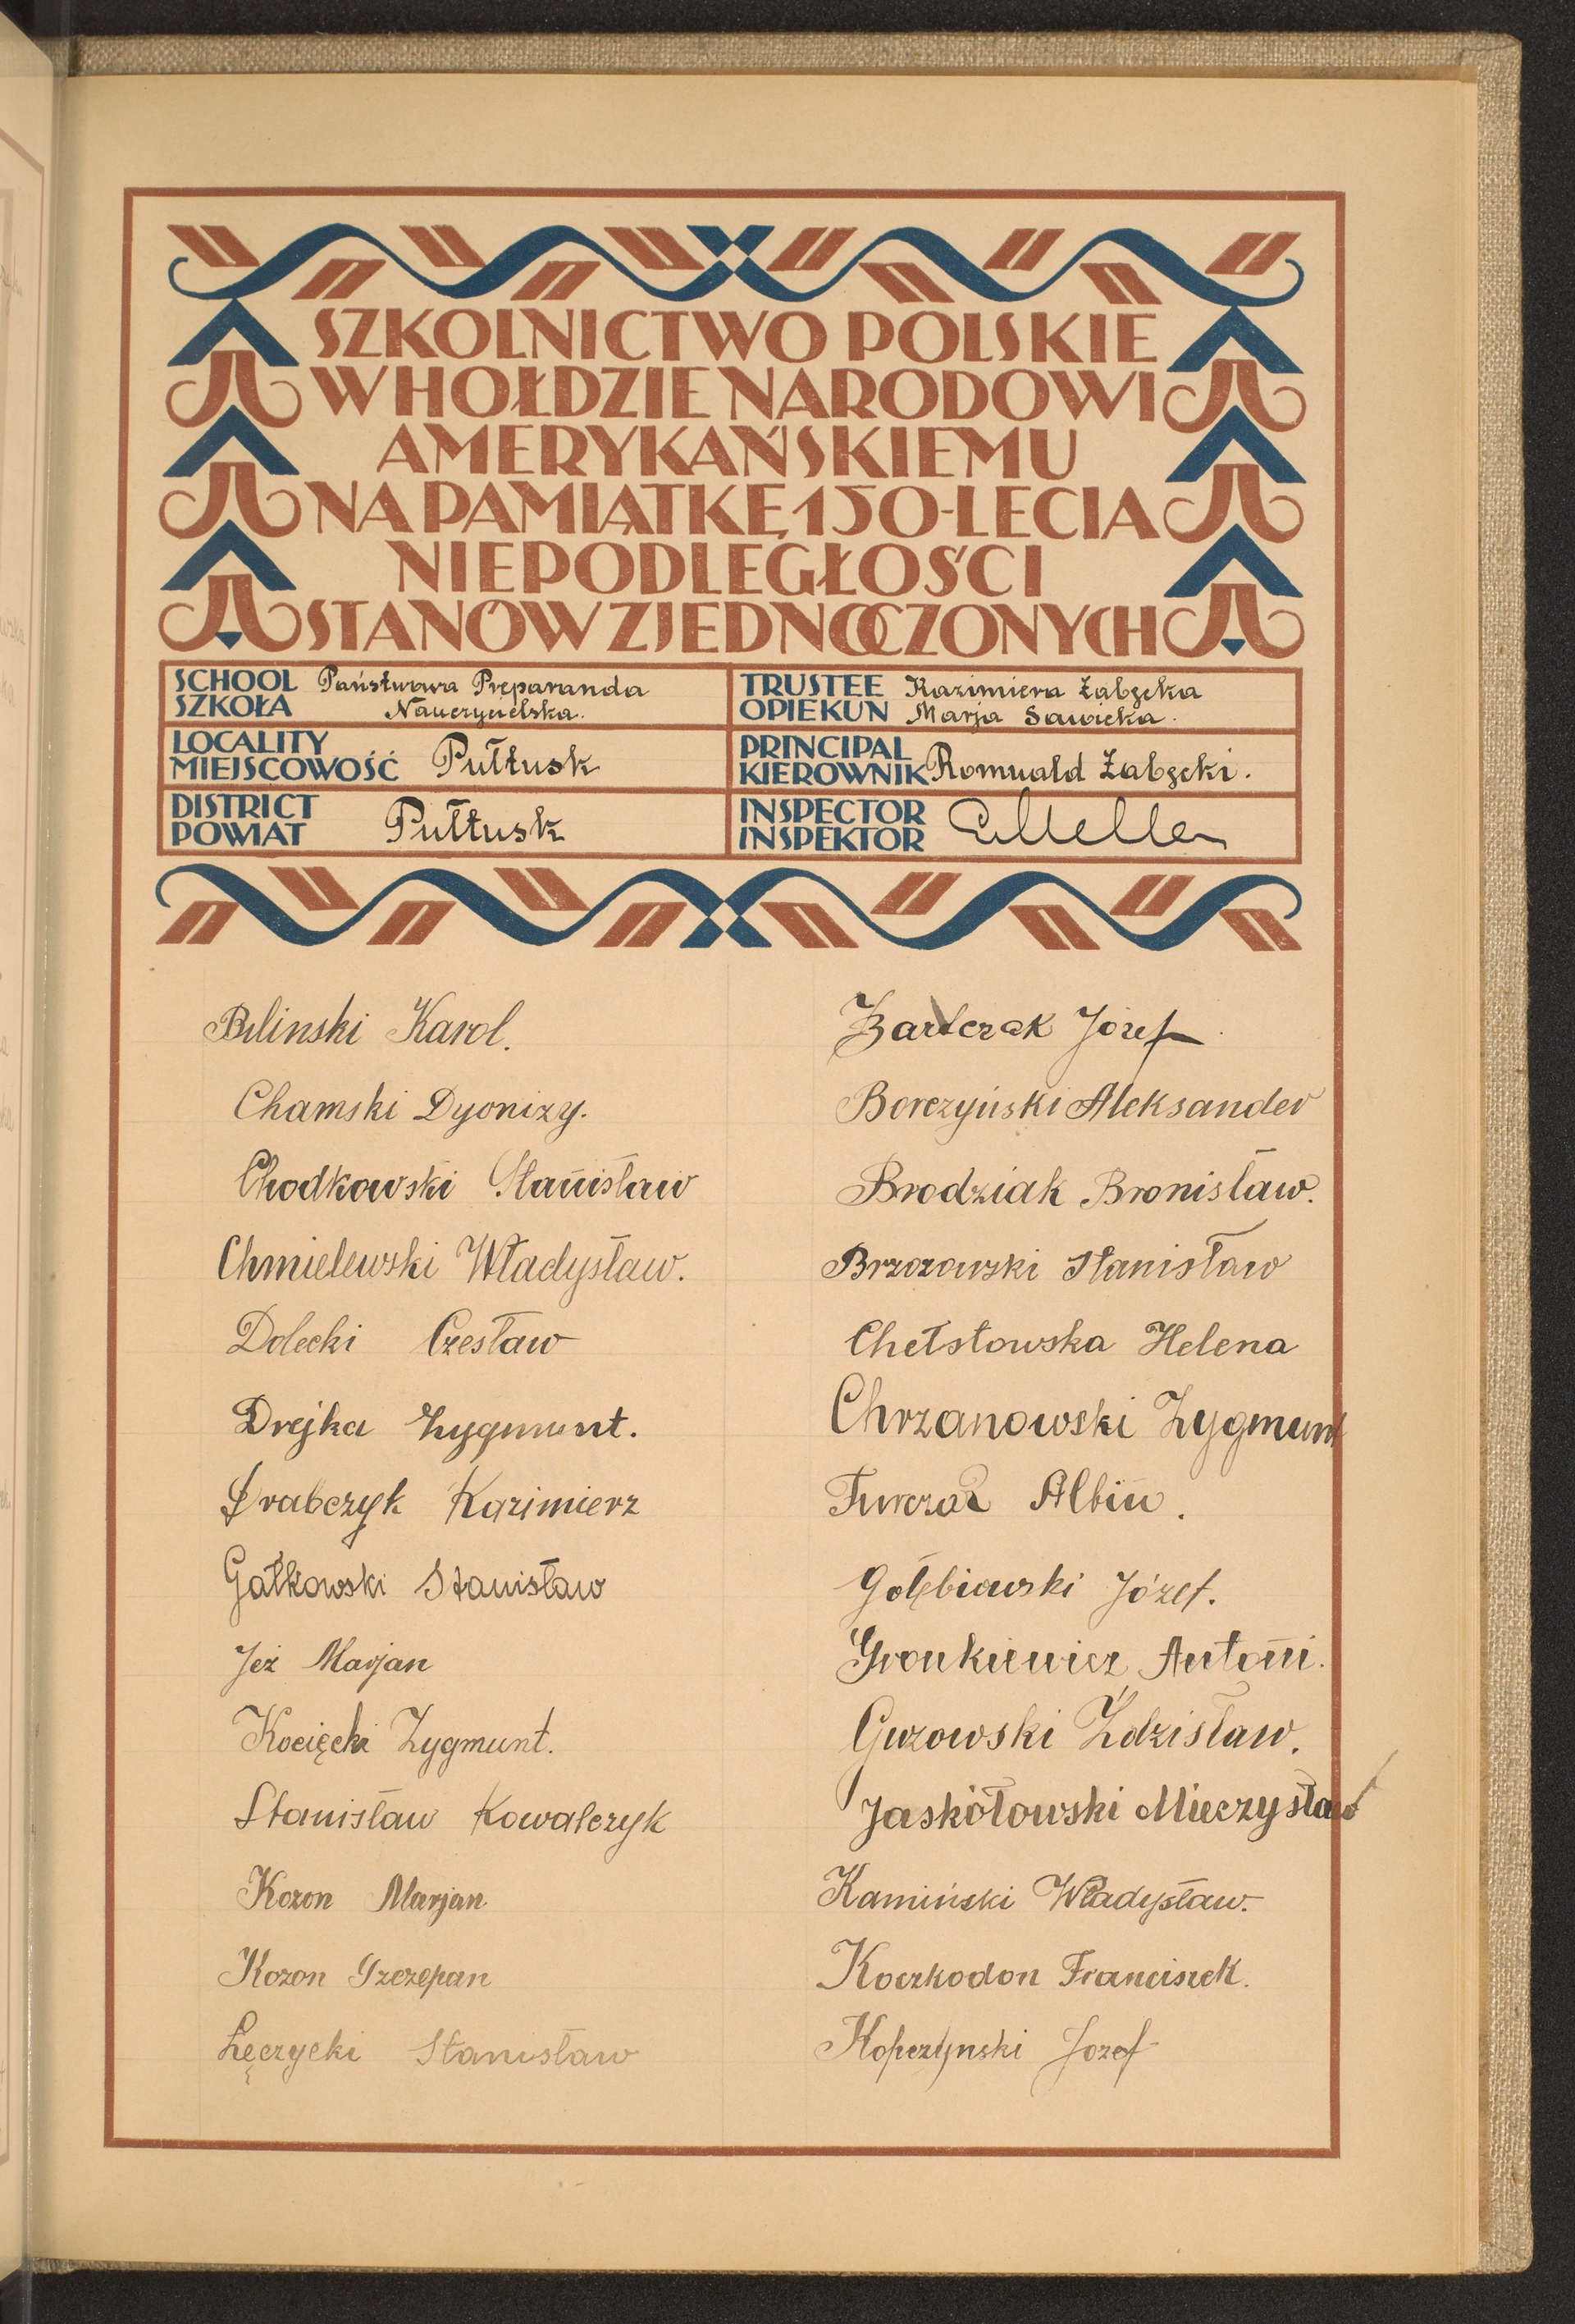 SZKOLNICTWO POLSKIE
W HOŁDZIE NARODOWI
AMERYKAŃSKIEMU
NA PAMIĄTKĘ 150-LECIA
NIEPODLEGŁOŚCI
STANÓW ZJEDNOCZONYCH
SCHOOL Państwowa Preparanda
SZKOŁA Nauczycielska.
TRUSTEE Kazimiera Żabzcka
OPIEKUN Marja Sawicka.
LOCALITY
MIEJSCOWOŚĆ Pułtusk
PRINCIPAL
KIEROWNIK Romuald Żabzcki.
DISTRICT
POWIAT Pułtusk
INSPECTOR
INSPEKTOR
Bilinski Karol.
Chamski Dyonizy.
Chodkowski Stanisław
Chmielewski Władysław.
Dolecki Czesław
Drejka Zygmunt.
Drabczyk Kazimierz
Gałkowski Stanisław
Jeż Marjan
Kocięcki Zygmunt.
Stanisław Kowalczyk
Kozon Marjan
Kozon Szczepan
Łęczycki Stanisław
Bartczak Józef
Borczyński Aleksander
Brodziak Bronisław.
Brzozowski Stanisław
Chełstowska Helena
Chrzanowski Zygmunt
Furczak Albin.
Gołębiowski Józef.
Gronkiewicz Antoni.
Guzowski Zdzisław.
Jaskółowski Mieczysław
Kamiński Władysław.
Koczkodon Franciszek.
Kopczynski Jozef